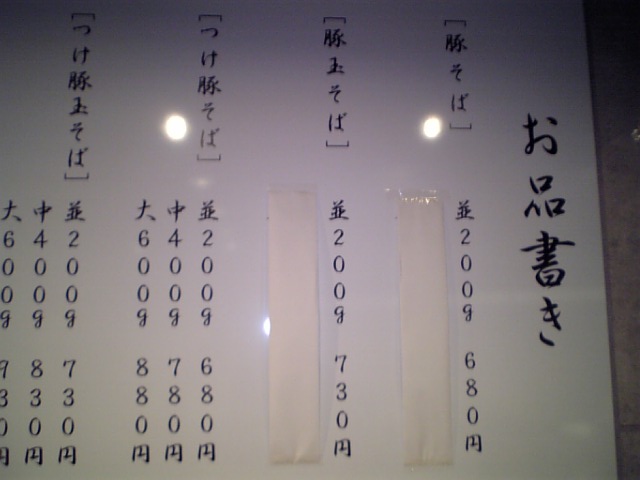 お品書き
[豚そば]
並200g 680円
[豚玉そば]
並200g 730円
[つけ豚そば]
並200g 680円
中400g 780円
大600g 880円
[つけ豚玉そば]
並200g 730円
中400g 830円
大600g 930円